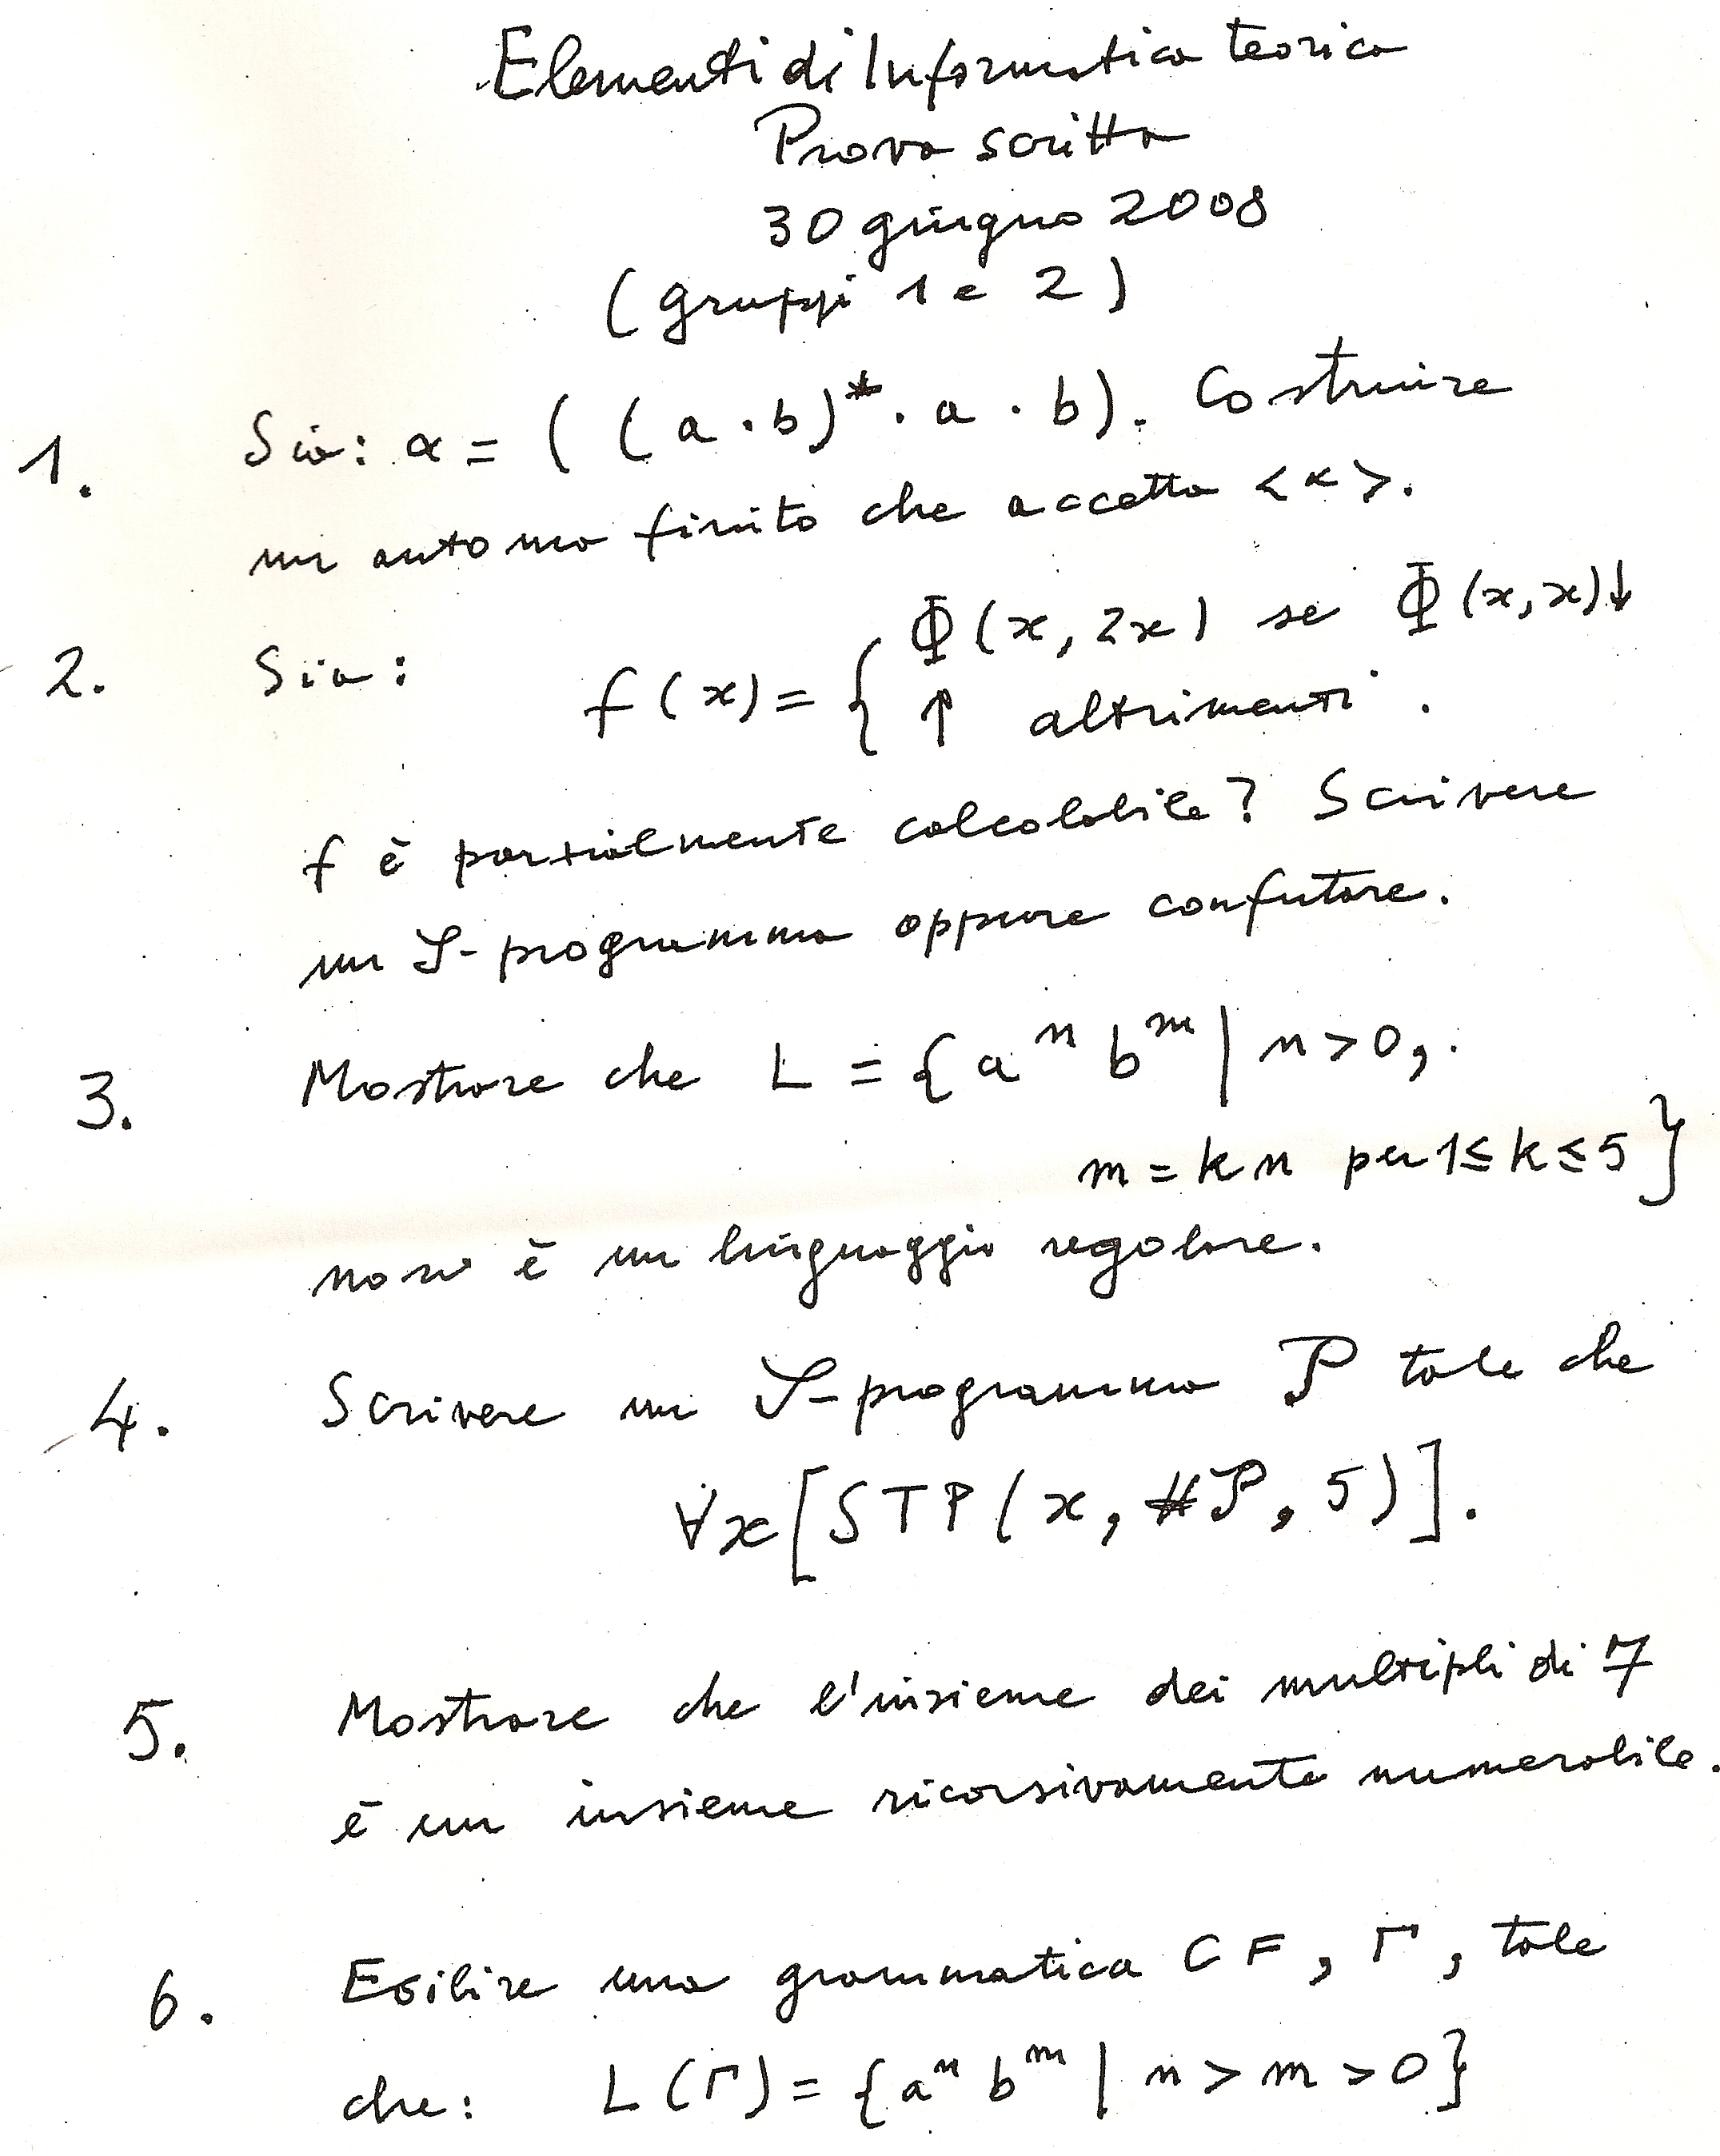 Elementi di Informatica teorica
Prova scritta
30 giugno 2008
(gruppi 1 e 2)
1. Sia: α = ((a·b)*·a·b). Costruire
un automa finito che accetta <α>.
2. Sia: f(x) = { Φ(x, 2x) se Φ(x,x)↓
↑ altrimenti.
f è parzialmente calcolabile? Scrivere
un S-programma oppure confutare.
3. Mostrare che L = {aⁿ bᵐ | n>0,
m = kn per 1≤k≤5}
non è un linguaggio regolare.
4. Scrivere un S-programma P tale che
∀x[STP(x, #P, 5)].
5. Mostrare che l'insieme dei multipli di 7
è un insieme ricorsivamente numerabile.
6. Esibire una grammatica CF, Γ, tale
che: L(Γ) = {aⁿ bᵐ | n > m > 0}